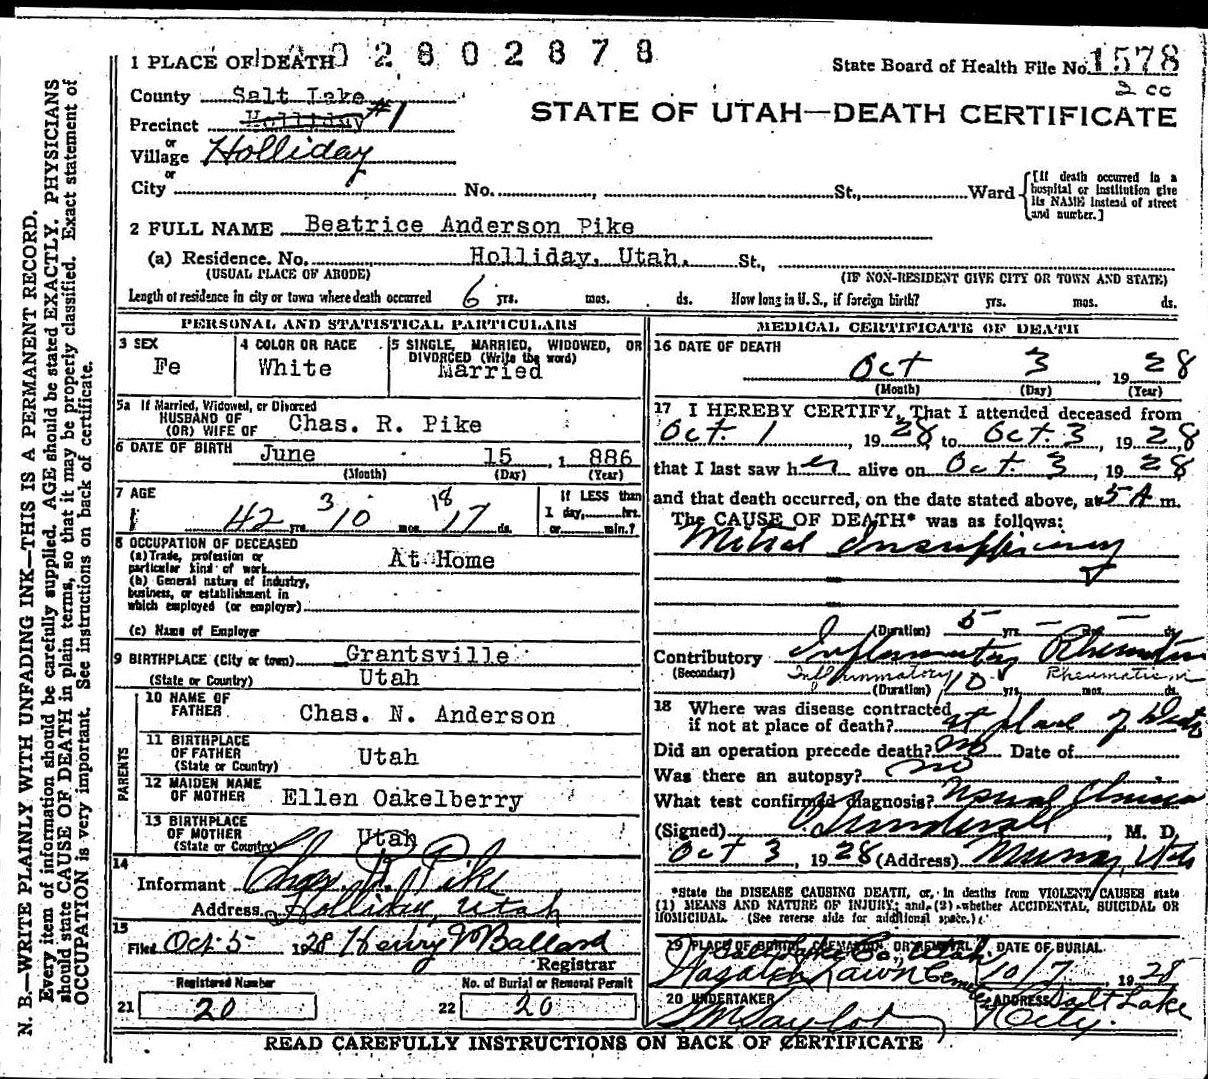 02802878
1 PLACE OF DEATH
State Board of Health File No. 1578
2 cc
County Salt Lake
STATE OF UTAH—DEATH CERTIFICATE
Precinct Holliday #1
or
Village Holliday
or
City No. St., Ward
[If death occurred in a
hospital or institution give
its NAME instead of street
and number.]
2 FULL NAME Beatrice Anderson Pike
(a) Residence. No. Holliday, Utah. St.,
(USUAL PLACE OF ABODE) (IF NON-RESIDENT GIVE CITY OR TOWN AND STATE)
Length of residence in city or town where death occurred 6 yrs. mos. ds. How long in U. S., if foreign birth? yrs. mos. ds.
PERSONAL AND STATISTICAL PARTICULARS
3 SEX
Fe
4 COLOR OR RACE
White
5 SINGLE, MARRIED, WIDOWED, OR
DIVORCED (Write the word)
Married
5a If Married, Widowed, or Divorced
HUSBAND OF
(OR) WIFE OF Chas. R. Pike
6 DATE OF BIRTH June 15, 1 886
(Month) (Day) (Year)
7 AGE 3 18
42 yrs. 10 mos. 17 ds.
If LESS than
1 day, hrs.
or min.?
8 OCCUPATION OF DECEASED
(a) Trade, profession or
particular kind of work At Home
(b) General nature of industry,
business, or establishment in
which employed (or employer)
(c) Name of Employer
9 BIRTHPLACE (City or town) Grantsville
(State or Country) Utah
PARENTS
10 NAME OF
FATHER Chas. N. Anderson
11 BIRTHPLACE
OF FATHER Utah
(State or Country)
12 MAIDEN NAME
OF MOTHER Ellen Oakelberry
13 BIRTHPLACE
OF MOTHER Utah
(State or Country)
14
Informant Chas. R. Pike
Address Holliday, Utah
15
Filed Oct. 5 1928 Henry J Ballard
Registrar
Registered Number
21 20
No. of Burial or Removal Permit
22 20
MEDICAL CERTIFICATE OF DEATH
16 DATE OF DEATH
Oct 3 1928
(Month) (Day) (Year)
17 I HEREBY CERTIFY, That I attended deceased from
Oct. 1, 1928 to Oct. 3, 1928
that I last saw her alive on Oct. 3, 1928
and that death occurred, on the date stated above, at 5 A m.
The CAUSE OF DEATH* was as follows:
Mitral Insufficiency
(Duration) 5 yrs. — mos. — ds.
Contributory Inflammatory Rheumatism
(Secondary) Inflammatory Rheumatism
(Duration) 10 yrs. mos. ds.
18 Where was disease contracted
if not at place of death? at place of death
Did an operation precede death? no Date of
Was there an autopsy? no
What test confirmed diagnosis? Usual Clinical
(Signed) , M. D.
Oct 3, 1928 (Address) Murray, Utah
*State the DISEASE CAUSING DEATH, or, in deaths from VIOLENT CAUSES state
(1) MEANS AND NATURE OF INJURY; and (2) whether ACCIDENTAL, SUICIDAL OR
HOMICIDAL. (See reverse side for additional space.)
19 PLACE OF BURIAL, CREMATION, OR REMOVAL DATE OF BURIAL
Salt Lake Co., Utah.
Wasatch Lawn Cemetery 10/7 1928
20 UNDERTAKER ADDRESS Salt Lake
S M Taylor City.
READ CAREFULLY INSTRUCTIONS ON BACK OF CERTIFICATE
N. B.—WRITE PLAINLY WITH UNFADING INK—THIS IS A PERMANENT RECORD.
Every item of information should be carefully supplied. AGE should be stated EXACTLY. PHYSICIANS
should state CAUSE OF DEATH in plain terms, so that it may be properly classified. Exact statement of
OCCUPATION is very important. See instructions on back of certificate.